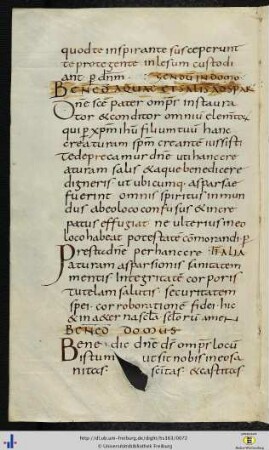 quod te inspirante susceperunt
te protegente inlesum custodi
ant p dnm
BENED AQUAE ET SALIS AD SPAR
Dne sce pater omps instaura
tor & conditor omniu elemtor
qui p xpm ihu filium tuu hanc
creaturam spm creante iussisti
Te depreca mur dne uti hanc cre
aturam salis & aquae benedicere
digneris ut ubicumq aspersae
fuerint omnis spiritus inmun
dus ab eo loco confusus & incre
patus effugiat ne ulterius in eo
loco habeat potestatem commorandi p
Presta dne per hanc cre
aturam aspersionis sanitatem
mentis Integritate corporis
Tutelam salutis securitatem
spei corroboratione fidei hic
& in aeter na scla sclorum amen
BENED DOMUS
Bene dic dne ds omps locu
istum ut sit nobis in eo sa
nitas scitas & castitas
http://dl.ub.uni-freiburg.de/diglit/hs363/0072
© Universitätsbibliothek Freiburg